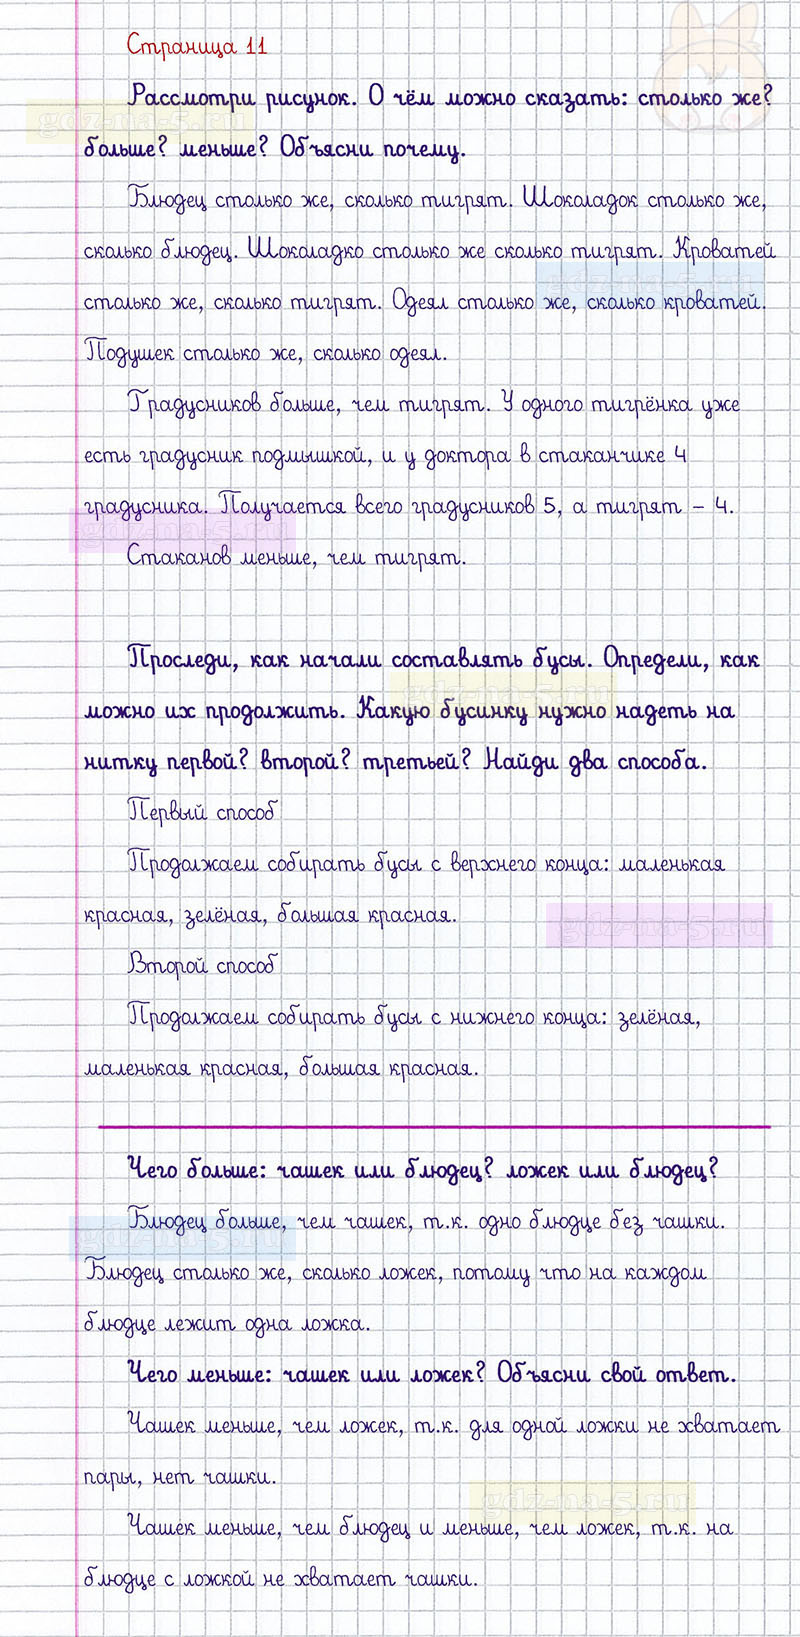 Страница 11
Рассмотри рисунок. О чём можно сказать: столько же?
больше? меньше? Объясни почему.
gdz-na-5.ru
Блюдец столько же, сколько тигрят. Шоколадок столько же,
сколько блюдец. Шоколадко столько же сколько тигрят. Кроватей
gdz-na-5.ru
столько же, сколько тигрят. Одеял столько же, сколько кроватей.
Подушек столько же, сколько одеял.
Градусников больше, чем тигрят. У одного тигрёнка уже
есть градусник подмышкой, и у доктора в стаканчике 4
градусника. Получается всего градусников 5, а тигрят – 4.
gdz-na-5.ru
Стаканов меньше, чем тигрят.
Проследи, как начали составлять бусы. Определи, как
gdz-na-5.ru
можно их продолжить. Какую бусинку нужно надеть на
нитку первой? второй? третьей? Найди два способа.
Первый способ
Продолжаем собирать бусы с верхнего конца: маленькая
красная, зелёная, большая красная.
gdz-na-5.ru
Второй способ
Продолжаем собирать бусы с нижнего конца: зелёная,
маленькая красная, большая красная.
Чего больше: чашек или блюдец? ложек или блюдец?
Блюдец больше, чем чашек, т.к. одно блюдце без чашки.
gdz-na-5.ru
Блюдец столько же, сколько ложек, потому что на каждом
блюдце лежит одна ложка.
Чего меньше: чашек или ложек? Объясни свой ответ.
Чашек меньше, чем ложек, т.к. для одной ложки не хватает
пары, нет чашки.
gdz-na-5.ru
Чашек меньше, чем блюдец и меньше, чем ложек, т.к. на
блюдце с ложкой не хватает чашки.